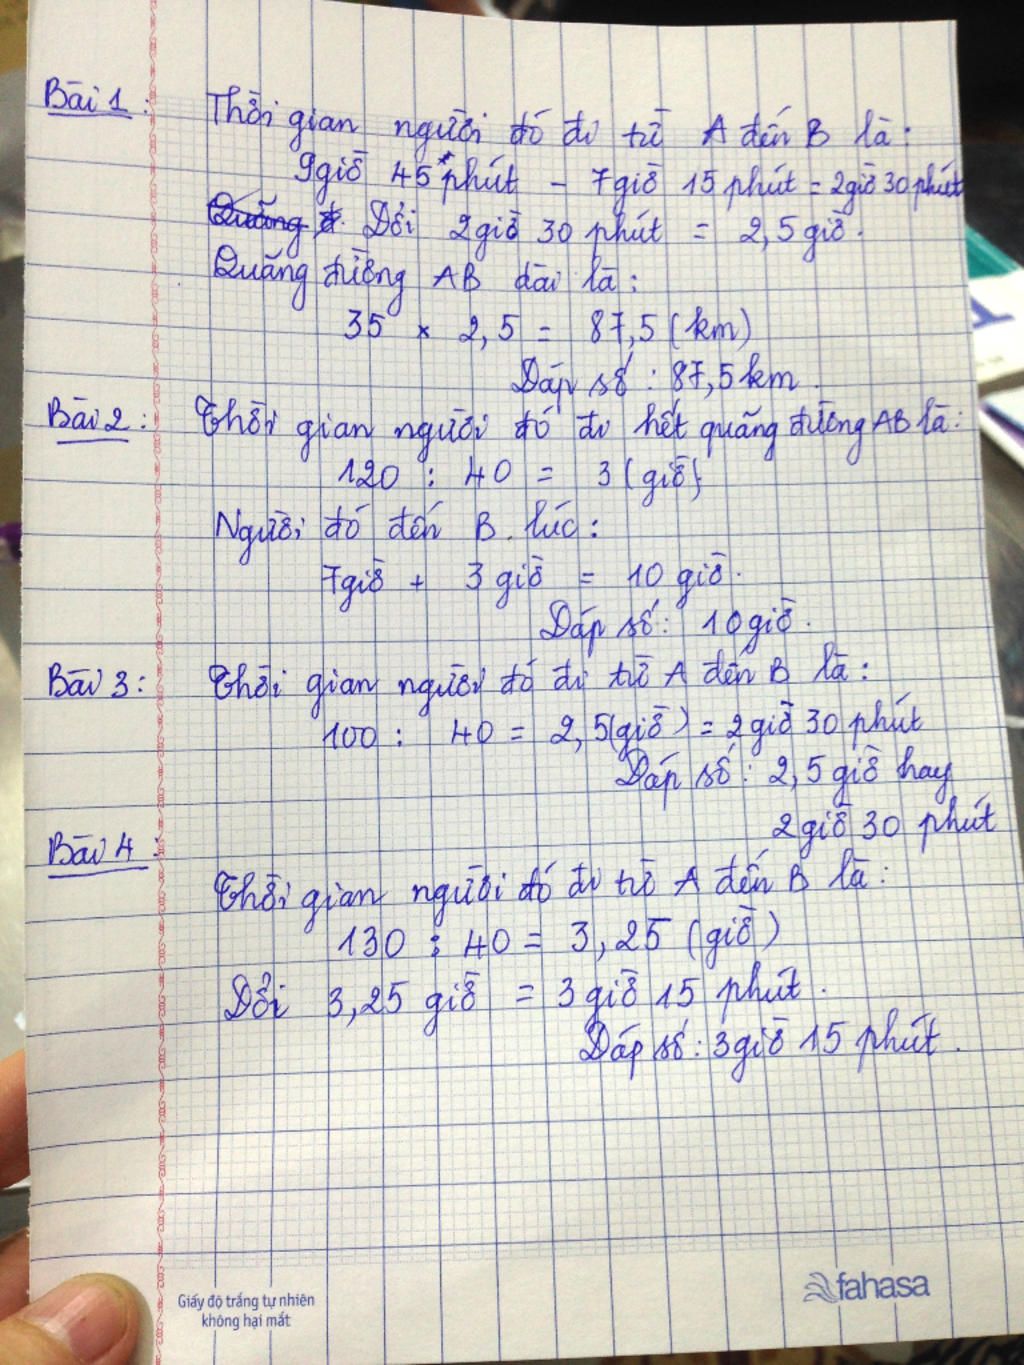 Bài 1: Thời gian người đó đi từ A đến B là:
9giờ 45 phút - 7giờ 15 phút = 2giờ 30 phút
Quãng đ. Đổi 2giờ 30 phút = 2,5 giờ.
Quãng đường AB dài là:
35 × 2,5 = 87,5 (km)
Đáp số: 87,5 km.
Bài 2: Thời gian người đó đi hết quãng đường AB là:
120 : 40 = 3 (giờ)
Người đó đến B lúc:
7giờ + 3 giờ = 10 giờ.
Đáp số: 10giờ.
Bài 3: Thời gian người đó đi từ A đến B là:
100 : 40 = 2,5(giờ) = 2giờ 30 phút
Đáp số: 2,5 giờ hay
2 giờ 30 phút
Bài 4:
Thời gian người đó đi từ A đến B là:
130 : 40 = 3,25 (giờ)
Đổi 3,25 giờ = 3 giờ 15 phút.
Đáp số: 3giờ 15 phút.
Giấy độ trắng tự nhiên
không hại mắt
fahasa